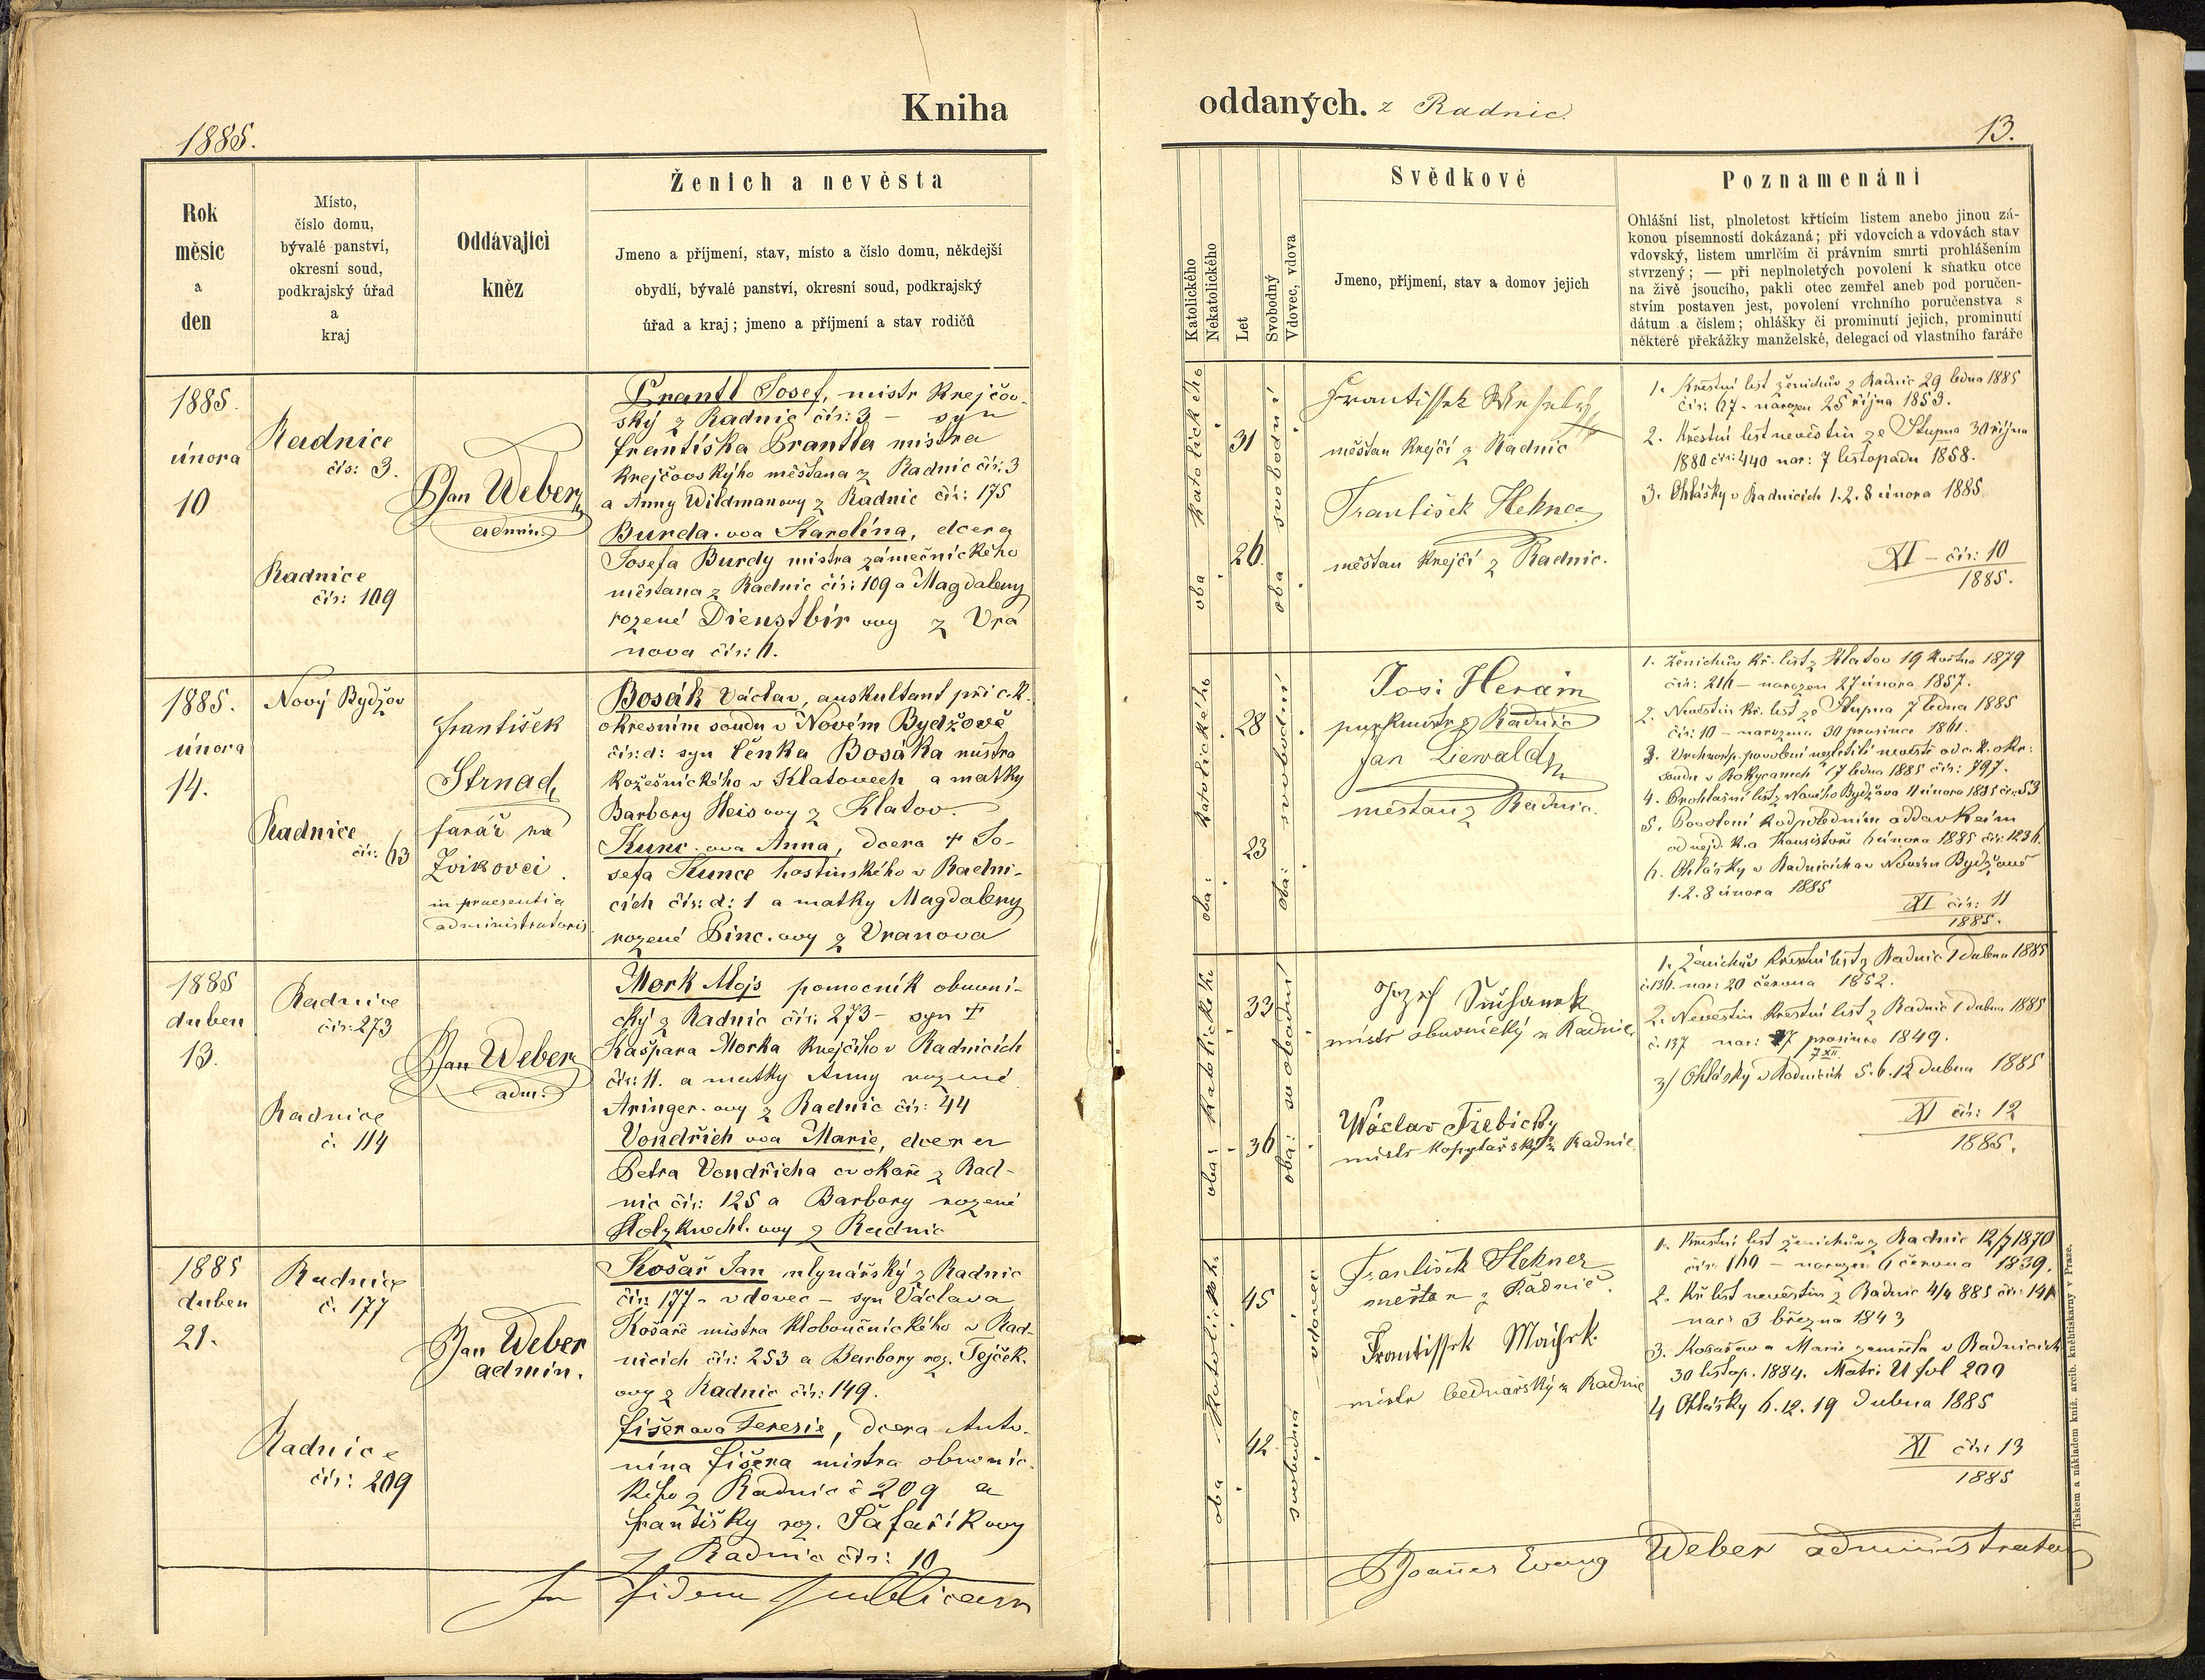 Kniha
1885.
Rok
měsíc
a
den
Místo,
číslo domu,
bývalé panství,
okresní soud,
podkrajský úřad
a
kraj
Oddávající
kněz
Ženich a nevěsta
Jmeno a příjmení, stav, místo a číslo domu, někdejší
obydlí, bývalé panství, okresní soud, podkrajský
úřad a kraj; jmeno a příjmení a stav rodičů
1885.
února
10
Radnice
čís: 3.
Radnice
čís: 109
Jan Weber
admin.
Prantl Josef, mistr krejčov-
ský z Radnic čís: 3 – syn
Františka Prantla mistra
krejčovského měšťana z Radnic čís: 3
a Anny Wildmanovy z Radnic čís: 175
Burda-ova Karolína, dcera
Josefa Burdy mistra zámečnického
měšťana z Radnic čís: 109 a Magdaleny
rozené Dienstbir ovy z Vra
nova čís: 11.
1885.
února
14.
Nový Bydžov
Radnice
čís: 63
František
Strnad
farář na
Zvíkovci
in praesentia
administratoris
Bosák Václav, auskultant při c.k.
okresním soudu v Novém Bydžově
čís: d: syn Čeňka Bosáka mistra
kožešnického v Klatovech a matky
Barbory Heis ovy z Klatov.
Kunc-ova Anna, dcera + Jo-
sefa Kunce hostinského v Radni-
cích čís: d: 1 a matky Magdaleny
rozené Pinc-ovy z Vranova
1885
duben
13.
Radnice
čís: 273
Radnice
č. 114
Jan Weber
adm:
Mork Alojs pomocník obuvni-
cký z Radnic čís: 273 – syn +
Kašpara Morka krejčího v Radnicích
čís: 11. a matky Anny rozené
Aringer-ovy z Radnic čís: 44
Vondřich ova Marie, dcera
Petra Vondřicha cvokaře z Rad-
nic čís: 125 a Barbory rozené
Holzknecht-ovy z Radnic
1885
duben
21.
Radnice
č. 177
Radnice
čís: 209
Jan Weber
admin.
Košař Jan mlynářský z Radnic
čís: 177 – vdovec – syn Václava
Košaře mistra kloboučnického v Rad-
nicích čís: 253 a Barbory roz. Tejček-
ovy z Radnic čís: 149.
Fišerova Teresie, dcera Anto-
nína Fišera mistra obuvnic-
kého z Radnic č 209 a
Františky roz. Šafaříkovy
z Radnic čís: 10
In fidem publicam
oddaných. z Radnic.
13.
Katolického
Nekatolického
Let
Svobodný
Vdovec, vdova
Svědkové
Jmeno, příjmení, stav a domov jejich
Poznamenání
Ohlášní list, plnoletost křticím listem anebo jinou zá-
konou písemností dokázaná; při vdovcích a vdovách stav
vdovský, listem umrlčím či právním smrti prohlášením
stvrzený; — při neplnoletých povolení k sňatku otce
na živě jsoucího, pakli otec zemřel aneb pod poručen-
stvím postaven jest, povolení vrchního poručenstva s
dátum a číslem; ohlášky či prominutí jejich, prominutí
některé překážky manželské, delegací od vlastního faráře
oba katolického
31
26.
oba svobodní
Frantissek Wesely
měšťan krejčí z Radnic
František Hekner
měšťan krejčí z Radnic.
1. Křestní list ženichův z Radnic 29 ledna 1885
čís: 67 – narozen 25 října 1853.
2. Křestní list nevěstin ze Stupna 30 října
1880 čís: 440 nar: 7 listopadu 1858.
3. Ohlášky v Radnicích 1. 2. 8 února 1885
XI – čís: 10
1885.
oba: katolického
28
23
oba: svobodní
Jos: Herain
purkmistr z Radnic
Jan Liewald
měšťan z Radnic.
1. Ženichův kř. list z Klatov 19 května 1879
čís: 216 – narozen 27 února 1857.
2. Nevěstin kř. list ze Stupna 7 ledna 1885
čís: 10 – narozena 30 prosince 1861.
3. Vrchnosp. povolení nezletilé nevěstě od c. k. okr:
soudu v Rokycanech 17 ledna 1885 čís: 797.
4. Prohlašní list z Nového Bydžova 11 února 1885 čís: 53
5. Povolení k odpoledním oddavkám
od nejd. k. a Konsistoře 6 února 1885 čís: 1236.
6. Ohlášky v Radnicích a v Novém Bydžově
1. 2. 8 února 1885
XI čís: 11
1885.
oba: katolického
33
36
oba: svobodní
Jozef
mistr obuvnický z Radnic
Wáclav Třebický
mistr kopytařský z Radnic
1. Ženichův křestní list z Radnic 1 dubna 1885
č. 136. nar: 20 června 1852.
2. Nevěstin křestní list z Radnic 1 dubna 1885
č. 137 nar: 7 prosince 1849.
7 XII
3/ Ohlášky v Radnicích 5. 6. 12 dubna 1885
XI čís: 12
1885.
oba katolického
45
42
vdovec
svobodná
František Hekner
měšťan z Radnic.
Frantissek
mistr bednářský z Radnic
1. Křestní list ženichův z Radnic 12/7 1870
čís: 160 – narozen 6 června 1839.
2. Kř. list nevěstin z Radnic 4/4 885 čís: 141
nar: 3 března 1843
3. Košařova Marie zemřela v Radnicích
30 listop. 1884. Matri U fol 200
4 Ohlášky 6. 12. 19 dubna 1885
XI čís: 13
1885
Joannes Evang Weber administrator
Tiskem a nákladem kníž. arcib. knihtiskárny v Praze.